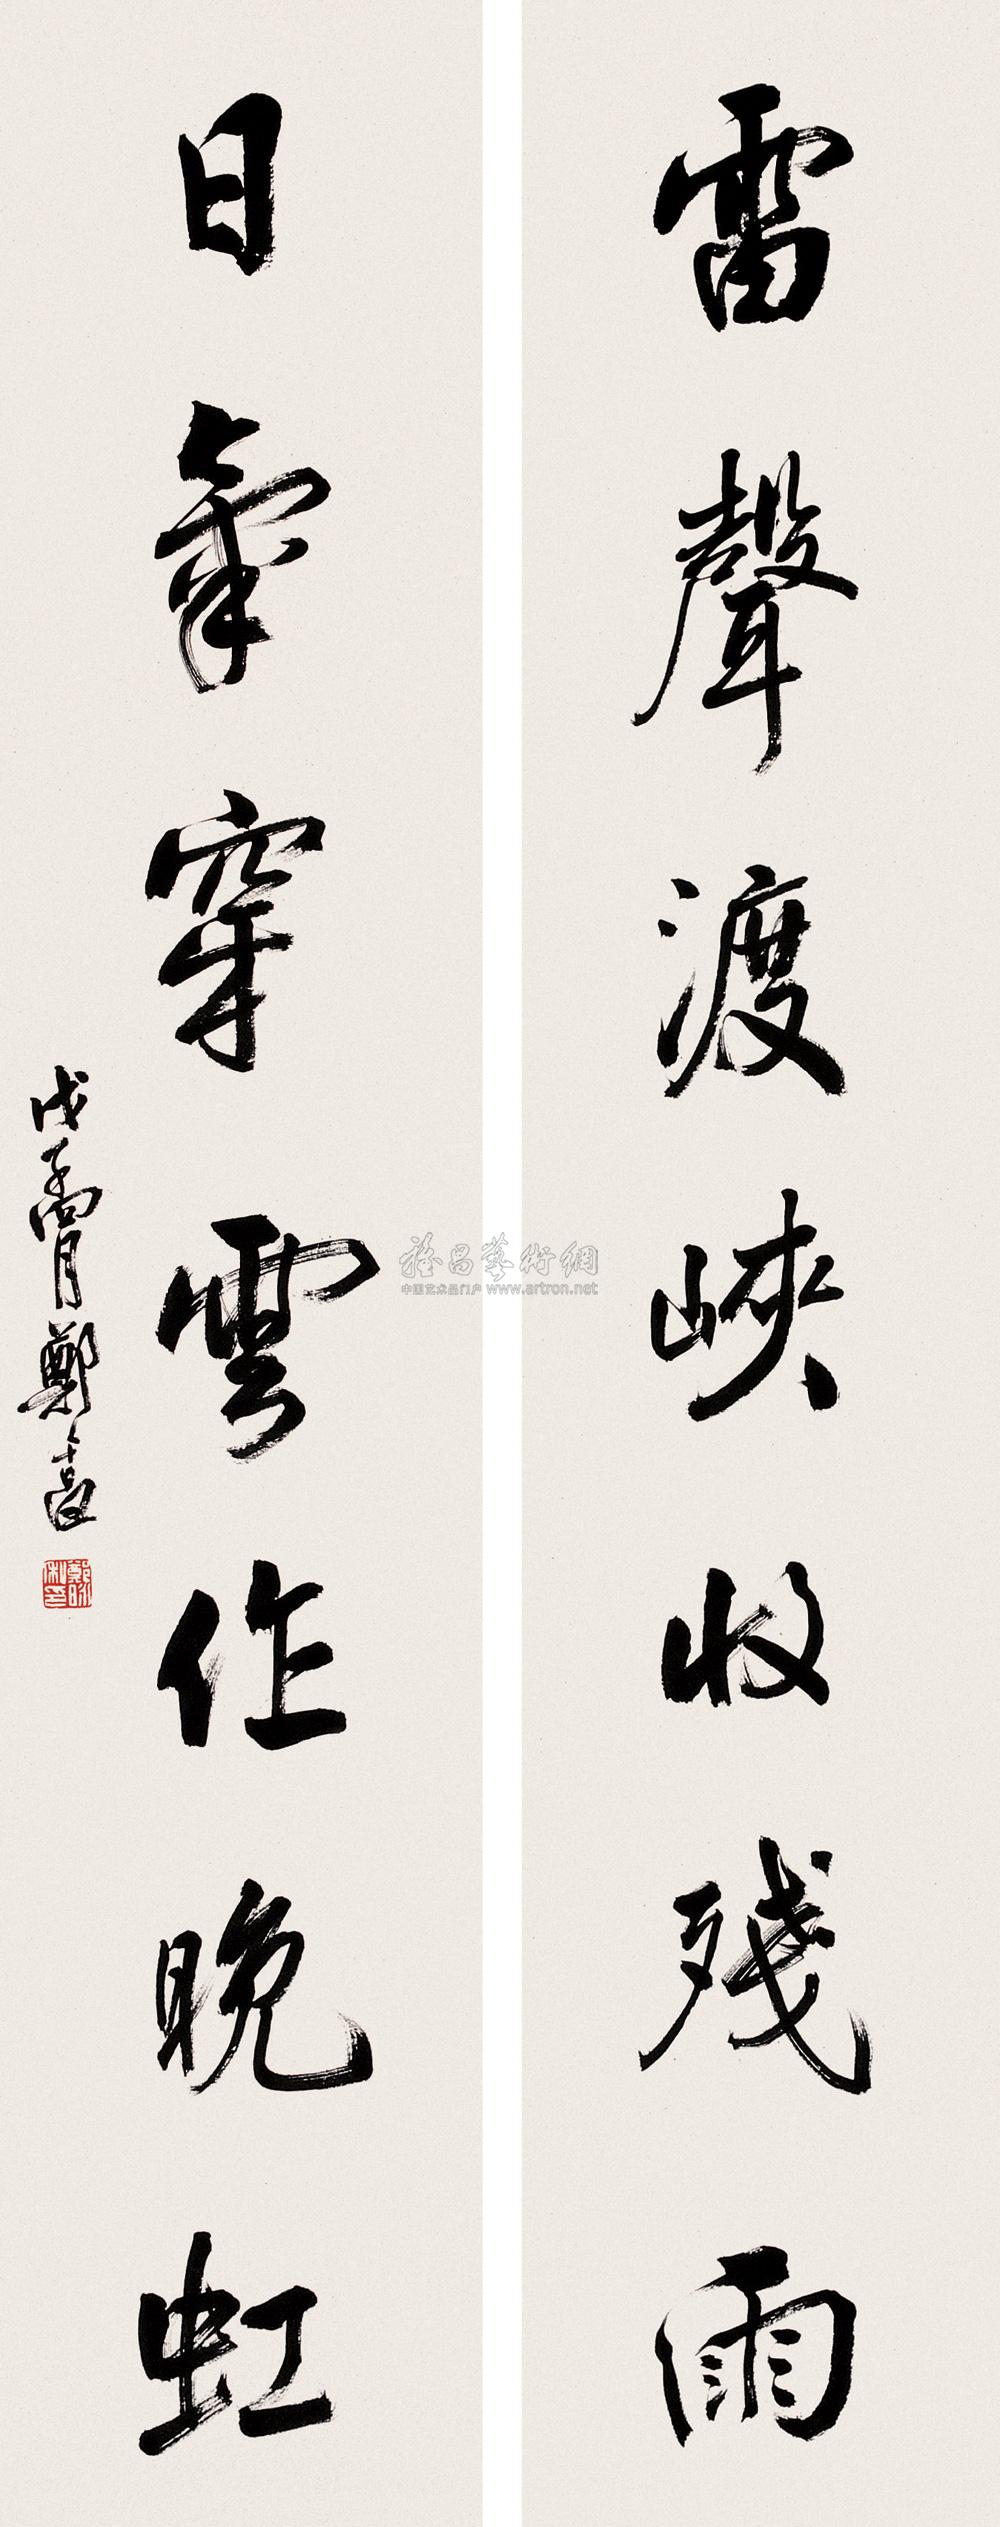 雷聲渡峽收殘雨
日氣穿雲作晚虹
戊子霄月鄭
雅昌藝術網
中国艺术品门户 www.artron.net